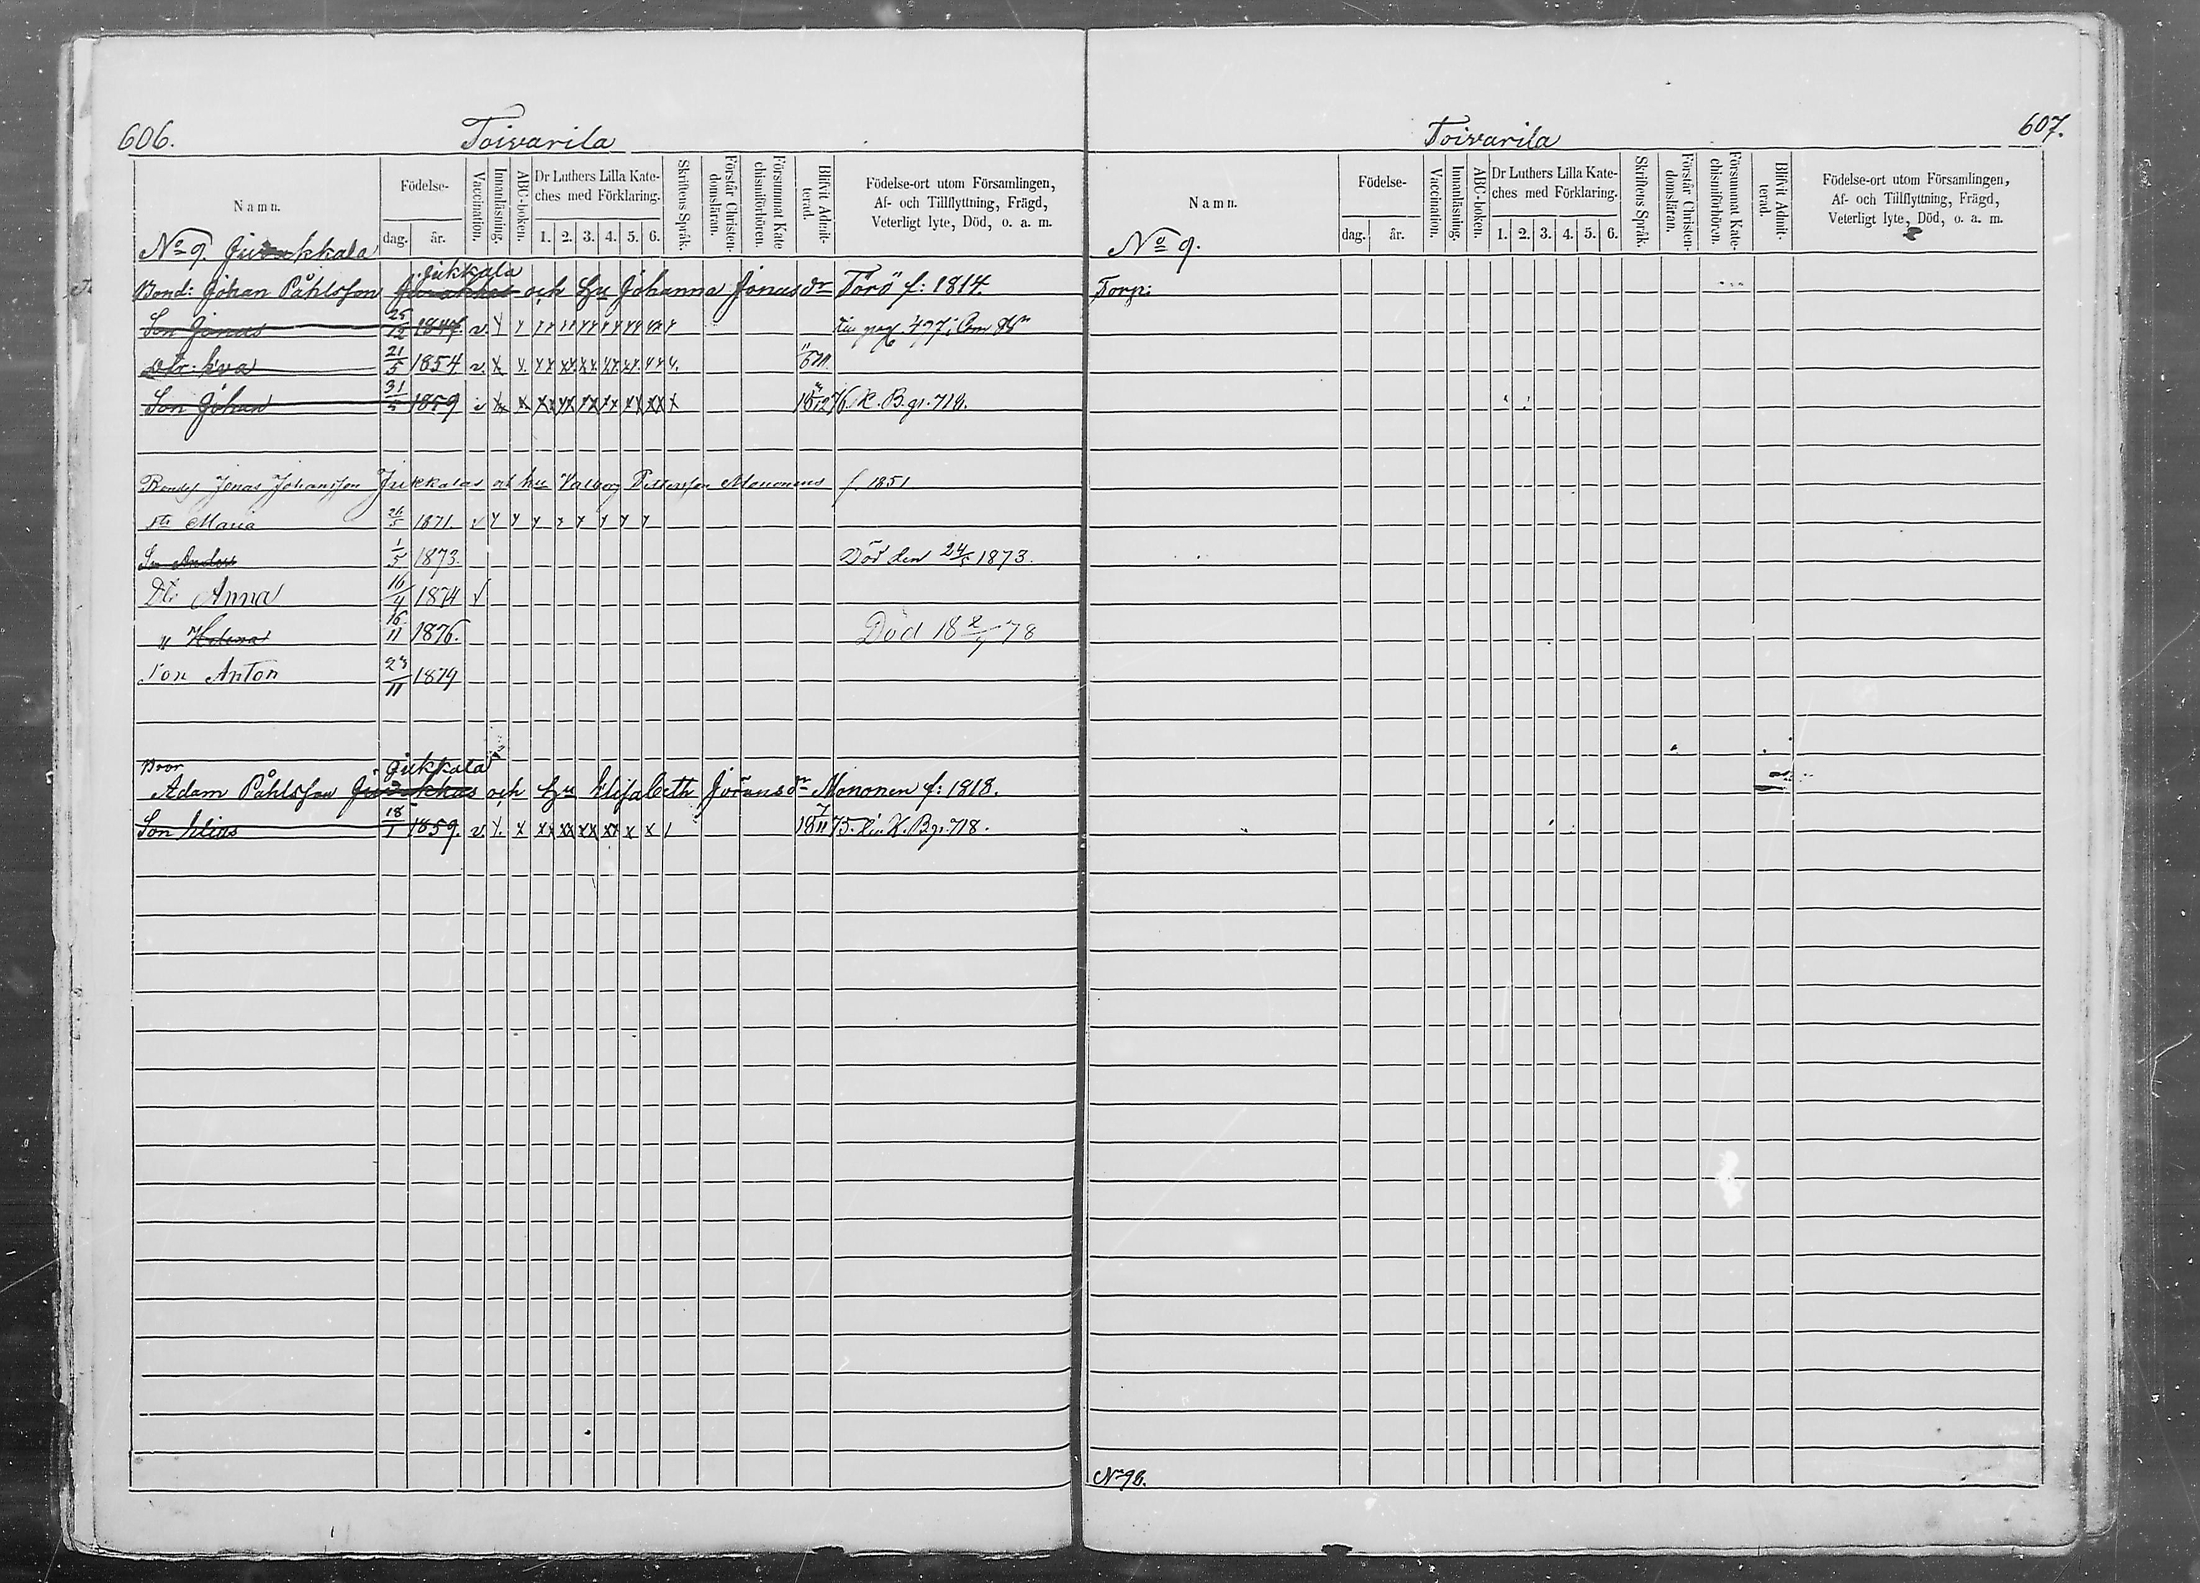 606.
Toivarila
Namn.
Födelse-
dag.
år.
Vaccination.
Innanläsning.
ABC-boken.
Dr Luthers Lilla Kate-
ches med Förklaring.
1. 2. 3. 4. 5. 6.
Skriftens Språk.
Förstår Christen-
domsläran.
Försummat Kate
chismiförhören.
Blifvit Admit-
terad.
Födelse-ort utom Församlingen,
Af- och Tillflyttning, Frägd,
Veterligt lyte, Död, o. a. m.
No 9.
Jukkala
Bond: Johan Påhlsson och Hu Johanna Jonasdr Törö f: 1814.
Son Jonas 25/12 1847 v.
Dtr: Eva 21/5 1854 v.
Son Johan 31/5 1859 v K. B. gr. 718.
Jonas Johansson Jukkalas och hu Valborg Mononens f. 1851
Dtr Maria 26/5 1871. v
Sn Anders 1/5 1873. Död den 24/5 1873.
Dtr Anna 16/4 1874 v
" Helena 16/11 1876. Död 18 2/4 78
Son Anton 23/11 1879
Bror
Jukkala
Adam Påhlsson och Hu Elisabeth Jöransdr Mononen f: 1818.
Son Elias 18/1 1859. v. 18 7/11 75. K. B. gr. 718.
Toivarila
607.
Namn.
Födelse-
dag.
år.
Vaccination.
Innanläsning.
ABC-boken.
Dr Luthers Lilla Kate-
ches med Förklaring.
1. 2. 3. 4. 5. 6.
Skriftens Språk.
Förstår Christen-
domsläran.
Försummat Kate-
chismiförhören.
Blifvit Admit-
terad.
Födelse-ort utom Församlingen,
Af- och Tillflyttning, Frägd,
Veterligt lyte, Död, o. a. m.
No 9.
Torp: